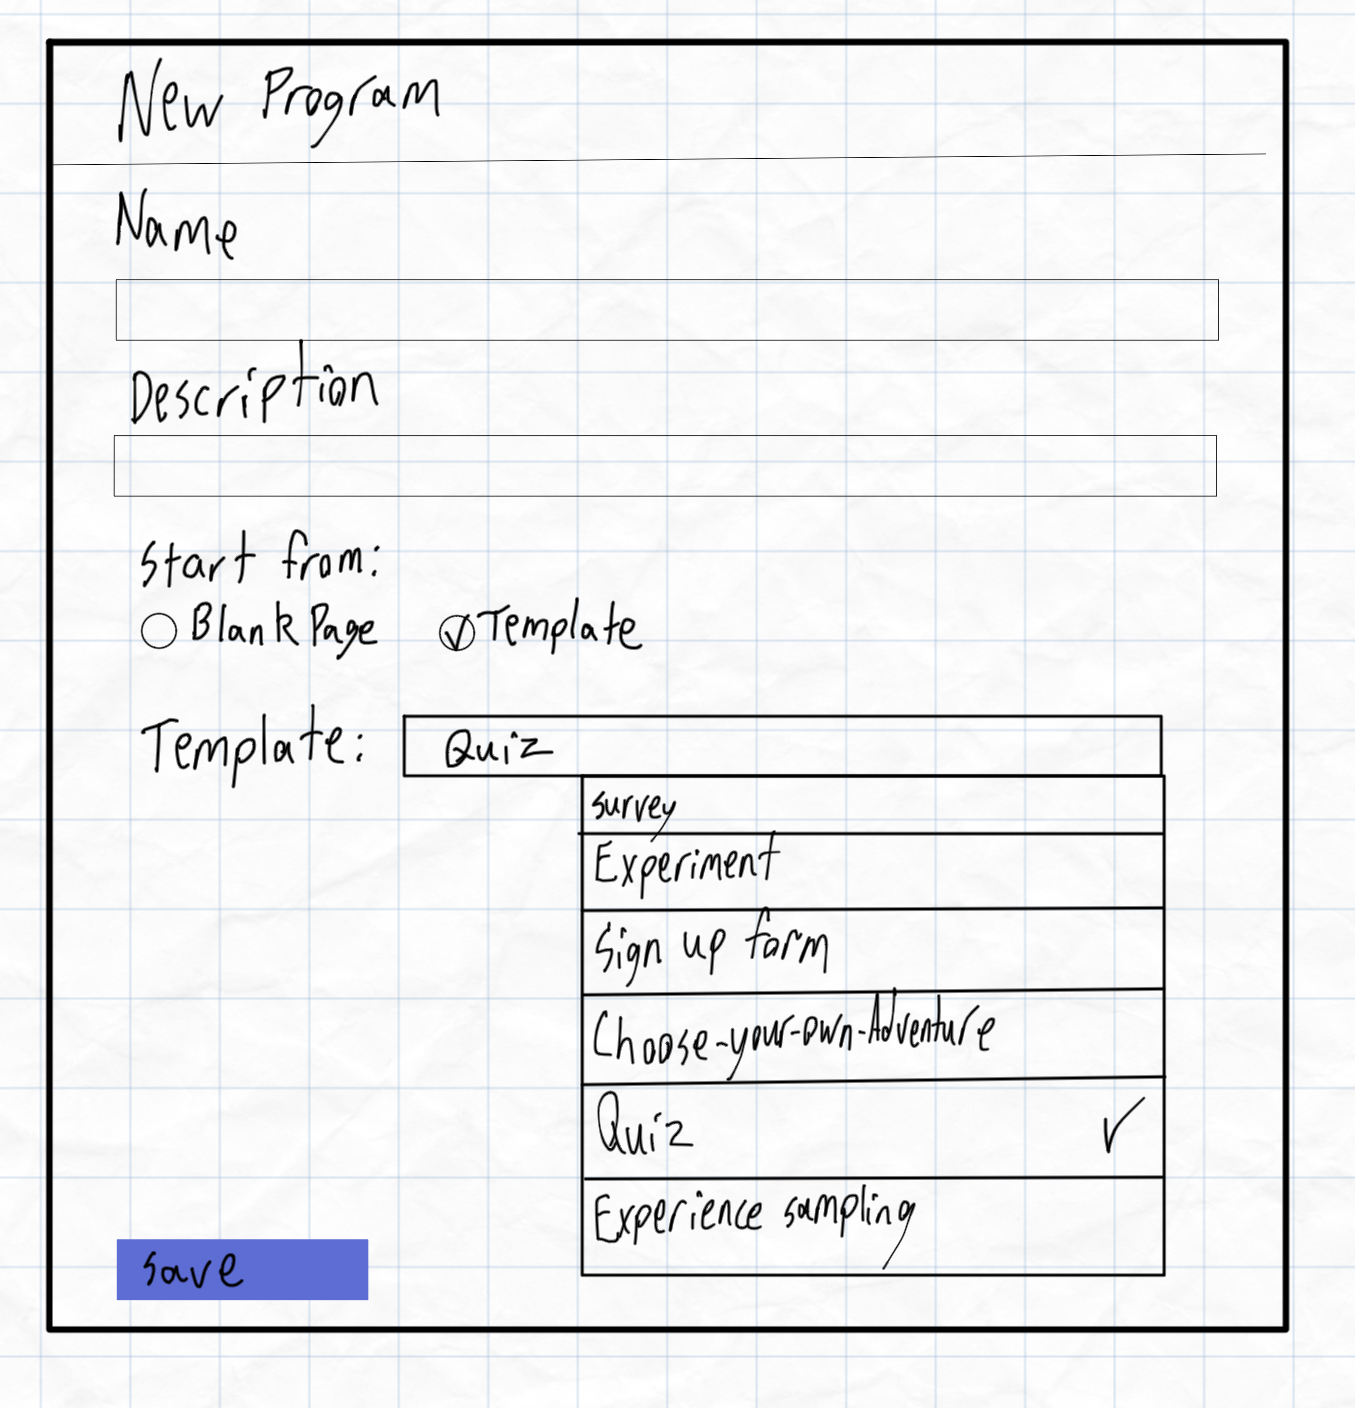 New Program
Name
Description
Start from:
Blank Page Template
Template: Quiz
survey
Experiment
Sign up form
Choose-your-own-Adventure
Quiz
Experience sampling
save